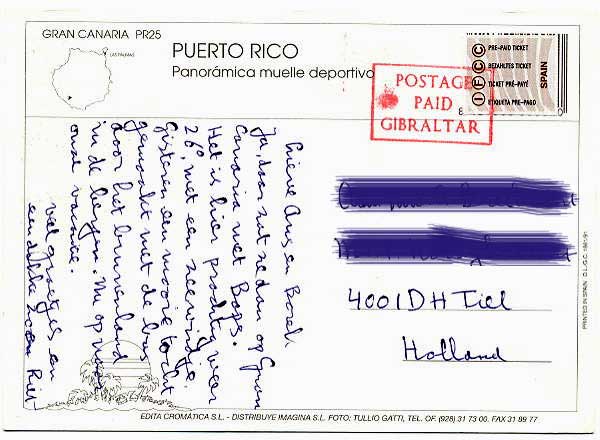 GRAN CANARIA PR25
LAS PALMAS
PUERTO RICO
Panorámica muelle deportivo
PRE-PAID TICKET
BEZAHLTES TICKET
TICKET PRÉ-PAYÉ
ETIQUETA PRE-PAGO
SPAIN
POSTAGE
PAID
GIBRALTAR
Lieve Ans en
Ja, daar zit ze dan op Gran
Canaria met Baps.
Het is hier prachtig weer
26°, met een zeewindje.
Gisteren een mooie tocht
gemaakt met de bus
door het binnenland
in de bergen. Nu op naar
onze vacantie.
veel groetjes en
een dikke zoen Riet
4001DH Tiel
Holland
PRINTED IN SPAIN D.L.G.C.
EDITA CROMÁTICA S.L. - DISTRIBUYE IMAGINA S.L. FOTO: TULLIO GATTI, TEL. OF. (928) 31 73 00. FAX 31 89 77